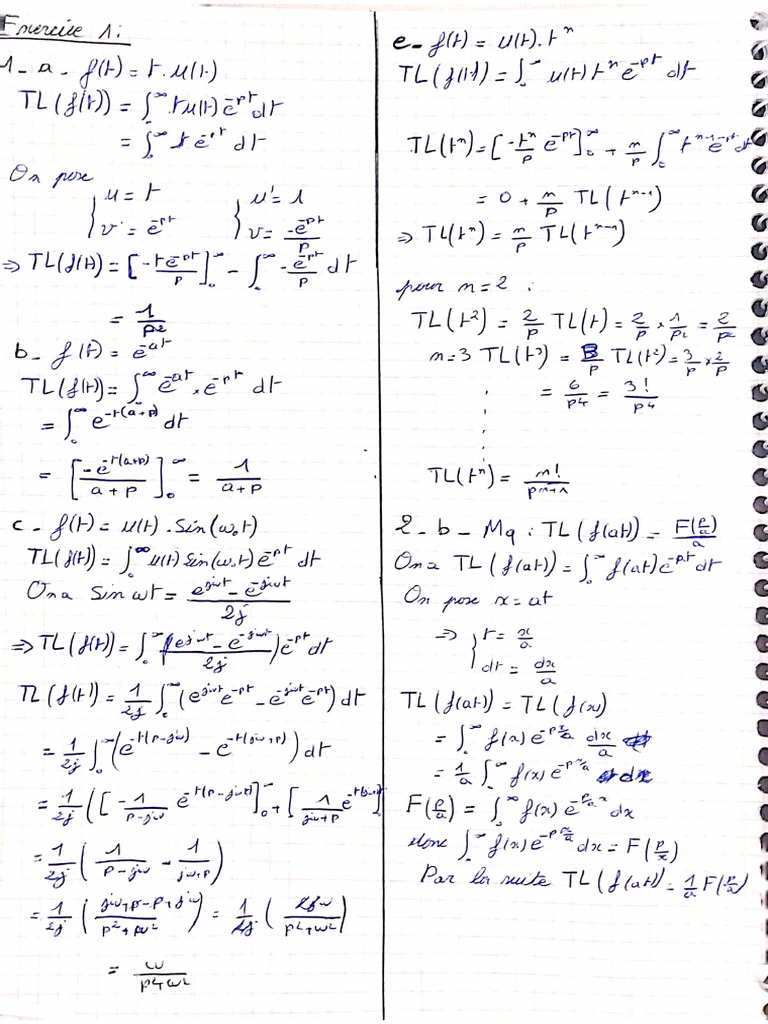 Exercice 1:
1 - a - f(t) = t . u(t)
TL(f(t)) = ∫₀^∞ t u(t) e^{-pt} dt
= ∫₀^∞ t e^{-pt} dt
On pose
{ u = t { u' = 1
{ v' = e^{-pt} { v = -e^{-pt}/p
⇒ TL(f(t)) = [-t e^{-pt}/p]₀^∞ - ∫₀^∞ -e^{-pt}/p dt
= 1/p²
b - f(t) = e^{-at}
TL(f(t)) = ∫₀^∞ e^{-at} × e^{-pt} dt
= ∫₀^∞ e^{-t(a+p)} dt
= [-e^{-t(a+p)}/(a+p)]₀^∞ = 1/(a+p)
c - f(t) = u(t) . Sin(ω₀t)
TL(f(t)) = ∫₀^∞ u(t) Sin(ω₀t) e^{-pt} dt
On a Sin ωt = (e^{jωt} - e^{-jωt})/2j
⇒ TL(f(t)) = ∫₀^∞ ((e^{jωt} - e^{-jωt})/2j) e^{-pt} dt
TL(f(t)) = 1/2j ∫₀^∞ (e^{jωt} e^{-pt} - e^{-jωt} e^{-pt}) dt
= 1/2j ∫₀^∞ (e^{-t(p-jω)} - e^{-t(jω+p)}) dt
= 1/2j ([-1/(p-jω) e^{-t(p-jω)}]₀^∞ + [1/(jω+p) e^{-t(p+jω)}]₀^∞
= 1/2j (1/(p-jω) - 1/(jω+p))
= 1/2j ((jω+p-p+jω)/(p²+ω²)) = 1/2j (2jω/(p²+ω²))
= ω/(p²+ω²)
e - f(t) = u(t) . t^n
TL(f(t)) = ∫₀^∞ u(t) t^n e^{-pt} dt
TL(t^n) = [-t^n/p e^{-pt}]₀^∞ + n/p ∫₀^∞ t^{n-1} e^{-pt} dt
= 0 + n/p TL(t^{n-1})
⇒ TL(t^n) = n/p TL(t^{n-1})
pour n = 2 :
TL(t²) = 2/p TL(t) = 2/p × 1/p² = 2/p²
n = 3 TL(t³) = 3/p TL(t²) = 3/p × 2/p
= 6/p⁴ = 3!/p⁴
TL(t^n) = n!/p^{n+1}
2 - b - Mq : TL(f(at)) = F(p/a)/a
On a TL(f(at)) = ∫₀^∞ f(at) e^{-pt} dt
On pose x = at
⇒ { t = x/a
{ dt = dx/a
TL(f(at)) = TL(f(x)
= ∫₀^∞ f(x) e^{-p x/a} dx/a
= 1/a ∫₀^∞ f(x) e^{-p x/a} dx
F(p/a) = ∫₀^∞ f(x) e^{-p/a x} dx
donc ∫₀^∞ f(x) e^{-p x/a} dx = F(p/x)
Par la suite TL(f(at)) = 1/a F(p/a)